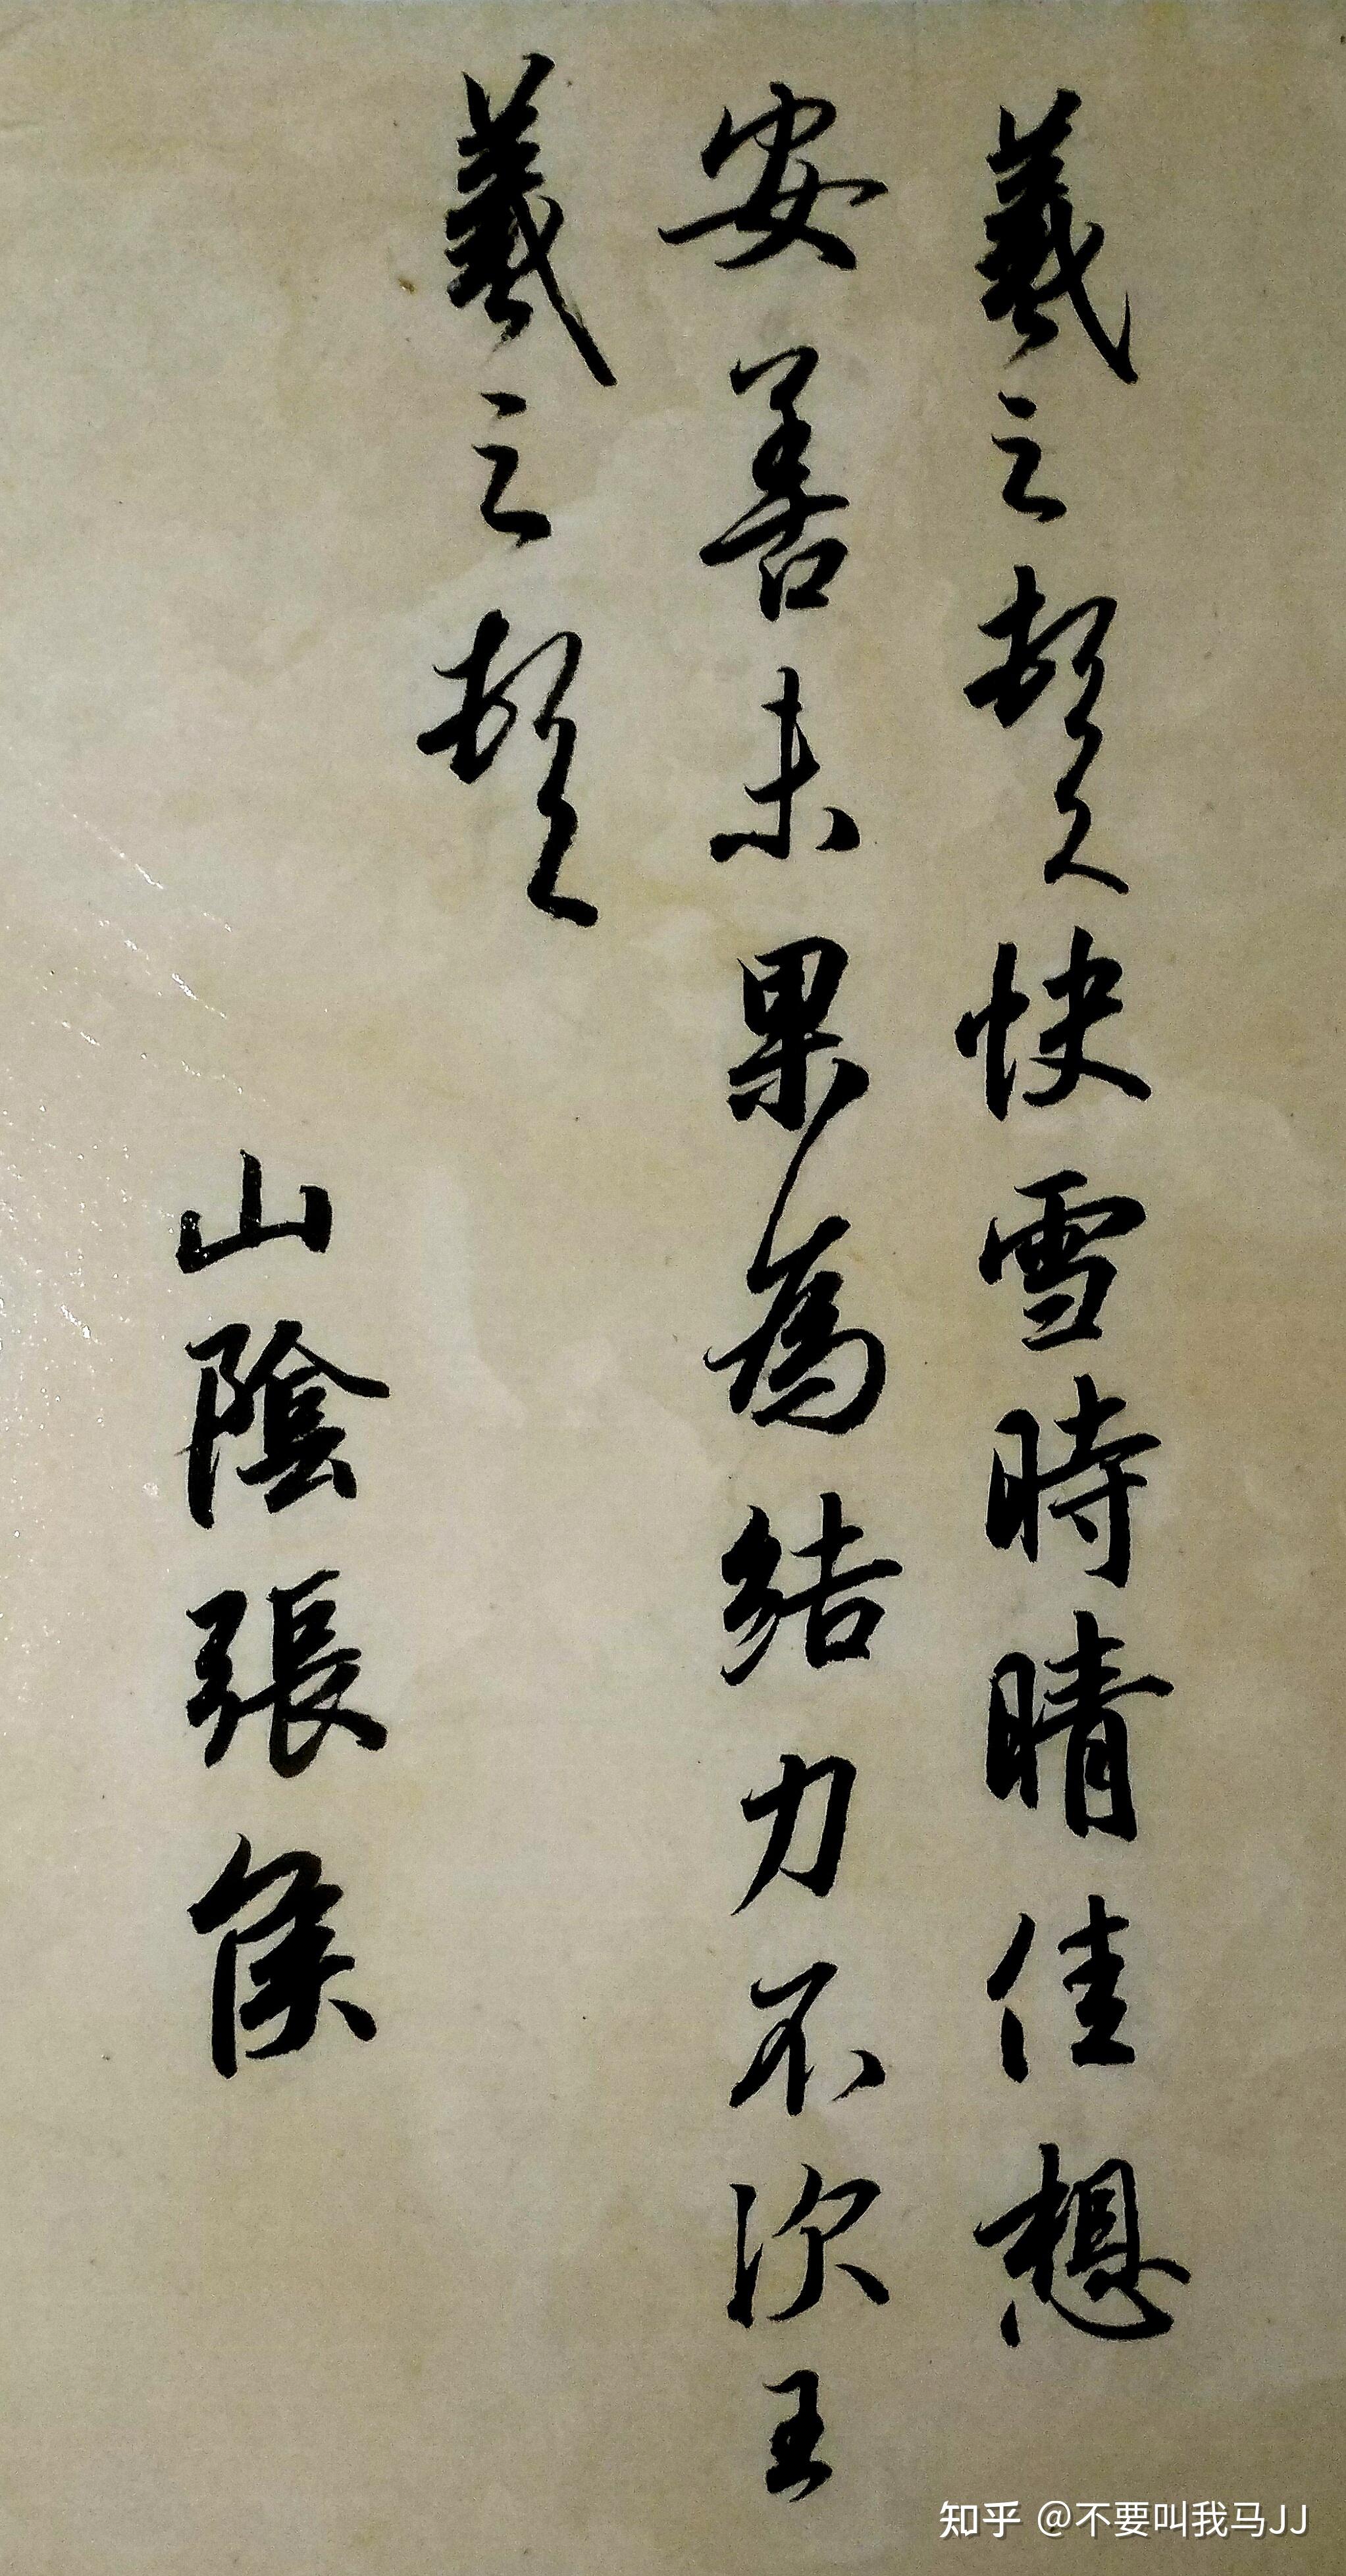 羲之頓首快雪時晴佳想
安善未果為結力不次王
羲之頓首
山陰張侯
知乎 @不要叫我马JJ